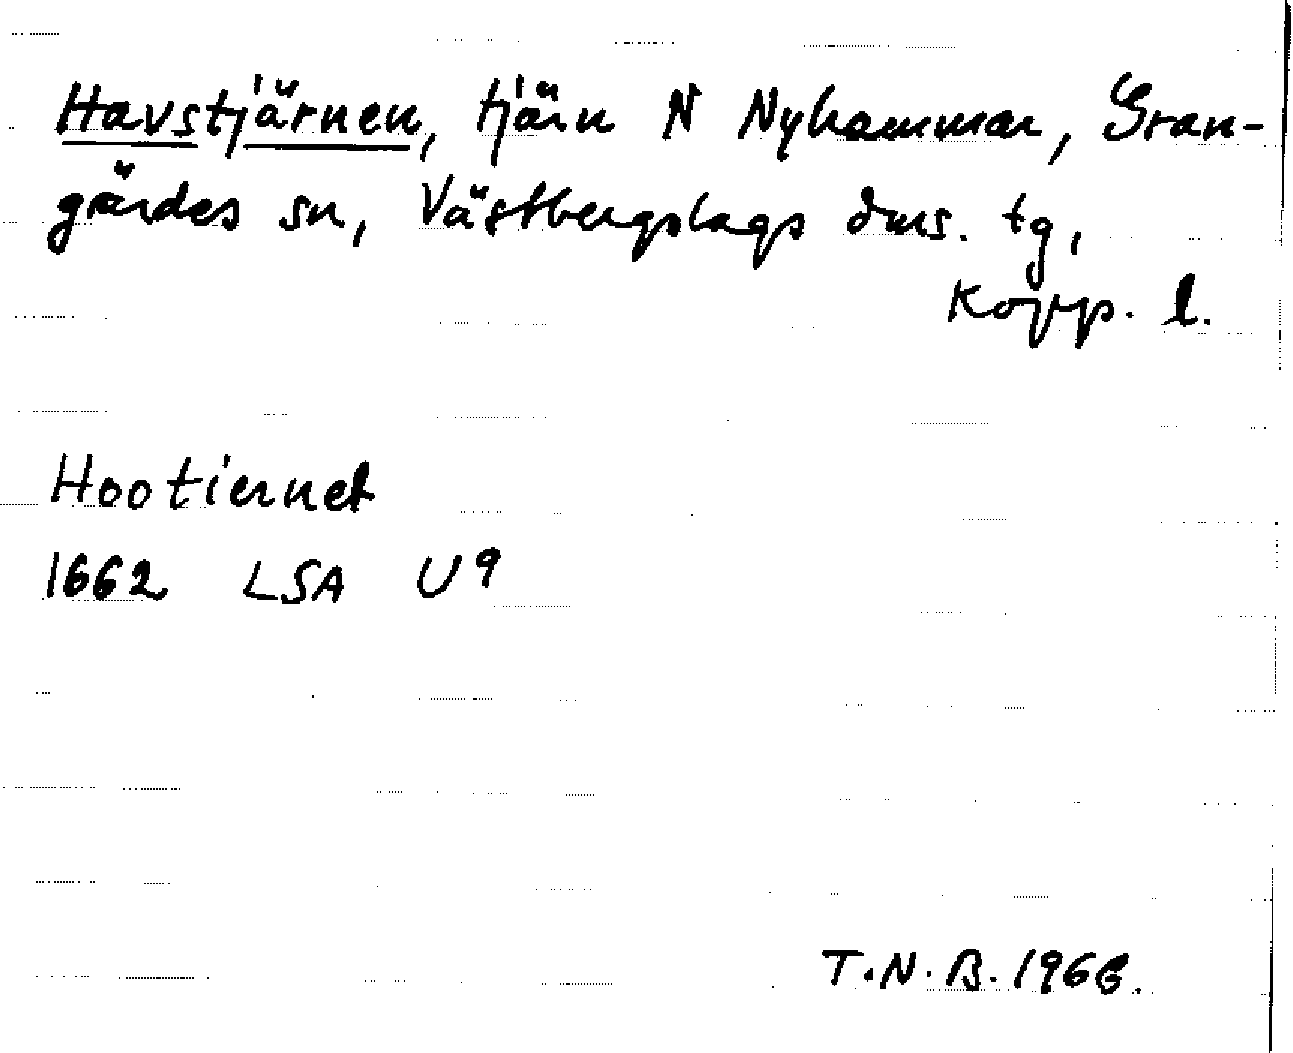 Havstjärnen, tjärn N Nyhammar, Gran-
gärdes sn, Västbergslags dms. tg,
Kopp. l.
Hootiernet
1662 LSA U9
T.N.B. 1966.